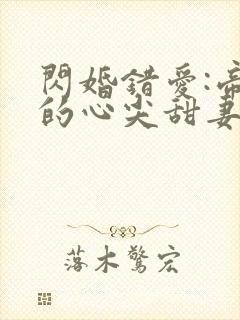 閃婚錯愛:帝
的心尖甜妻
落木驚宏